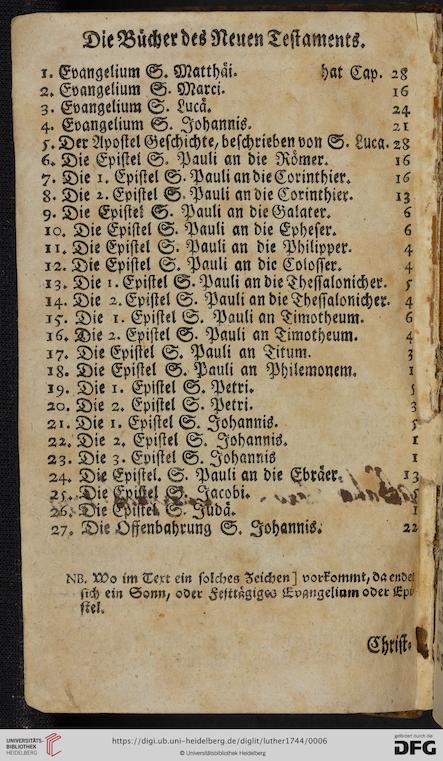 Die Bücher des Neuen Testaments.
1. Evangelium S. Matthäi. hat Cap. 28
2. Evangelium S. Marci. 16
3. Evangelium S. Lucä. 24
4. Evangelium S. Johannis. 21
5. Der Apostel Geschichte, beschrieben von S. Luca. 28
6. Die Epistel S. Pauli an die Römer. 16
7. Die 1. Epistel S. Pauli an die Corinthier. 16
8. Die 2. Epistel S. Pauli an die Corinthier. 13
9. Die Epistel S. Pauli an die Galater. 6
10. Die Epistel S. Pauli an die Epheser. 6
11. Die Epistel S. Pauli an die Philipper. 4
12. Die Epistel S. Pauli an die Colosser. 4
13. Die 1. Epistel S. Pauli an die Thessalonicher. 5
14. Die 2. Epistel S. Pauli an die Thessalonicher. 4
15. Die 1. Epistel S. Pauli an Timotheum. 6
16. Die 2. Epistel S. Pauli an Timotheum. 4
17. Die Epistel S. Pauli an Titum. 3
18. Die Epistel S. Pauli an Philemonem. 1
19. Die 1. Epistel S. Petri. 5
20. Die 2. Epistel S. Petri. 3
21. Die 1. Epistel S. Johannis. 5
22. Die 2. Epistel S. Johannis. 1
23. Die 3. Epistel S. Johannis 1
24. Die Epistel. S. Pauli an die Ebräer. 13
25. Die Epistel S. Jacobi. 5
26. Die Epistel S. Judä. 1
27. Die Offenbahrung S. Johannis. 22
NB. Wo im Text ein solches Zeichen ] vorkommt, da endet
sich ein Sonn, oder Festtägiges Evangelium oder Epi-
stel.
Christ-
UNIVERSITÄTS-
BIBLIOTHEK
HEIDELBERG
https://digi.ub.uni-heidelberg.de/diglit/luther1744/0006
© Universitätsbibliothek Heidelberg
gefördert durch die
DFG